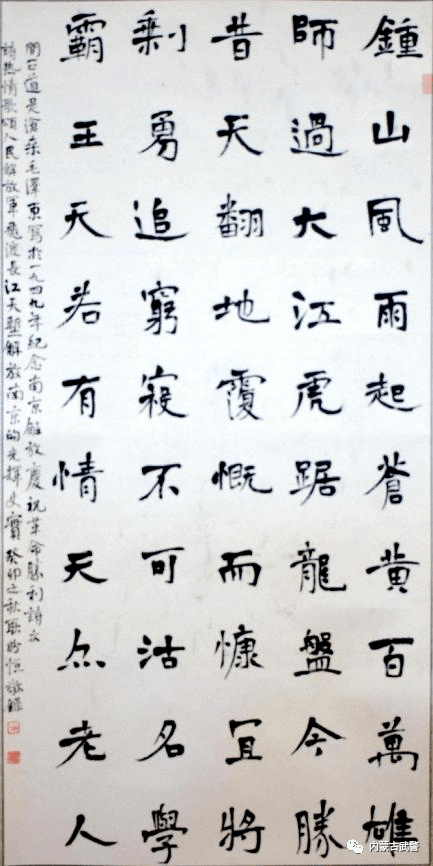 鍾山風雨起蒼黄百萬雄
師過大江虎踞龍盤今勝
昔天翻地覆慨而慷宜將
剩勇追窮寇不可沽名學
霸王天若有情天亦老人
間正道是滄桑毛澤東寫於一九四九年紀念南京解放慶祝革命勝利詩文
詩熱情歌頌人民解放軍飛渡長江天塹解放南京的光輝史實癸卯之秋恒敬錄
内蒙古武警